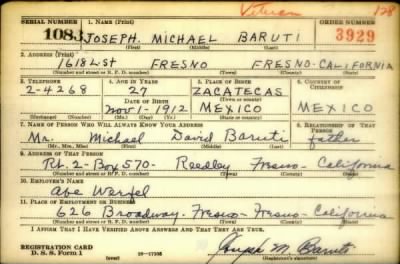 Veteran 128
SERIAL NUMBER 1. NAME (Print) ORDER NUMBER
1083 JOSEPH MICHAEL BARUTI 3929
(First) (Middle) (Last)
2. ADDRESS (Print)
1618 L St FRESNO FRESNO - CALIFORNIA
(Number and street or R. F. D. number) (Town) (County) (State)
3. TELEPHONE 4. AGE IN YEARS 5. PLACE OF BIRTH 6. COUNTRY OF CITIZENSHIP
2-4268 27 ZACATECAS
DATE OF BIRTH (Town or county)
Nov-1-1912 MEXICO MEXICO
(Exchange) (Number) (Mo.) (Day) (Yr.) (State or country)
7. NAME OF PERSON WHO WILL ALWAYS KNOW YOUR ADDRESS 8. RELATIONSHIP OF THAT PERSON
Mr. Michael David Baruti father
(Mr., Mrs., Miss) (First) (Middle) (Last)
9. ADDRESS OF THAT PERSON
Rt. 2 - Box 570 - Reedley Fresno - California
(Number and street or R. F. D. number) (Town) (County) (State)
10. EMPLOYER'S NAME
Abe Werfel
11. PLACE OF EMPLOYMENT OR BUSINESS
626 Broadway - Fresno - Fresno - California
(Number and street or R. F. D. number) (Town) (County) (State)
I AFFIRM THAT I HAVE VERIFIED ABOVE ANSWERS AND THAT THEY ARE TRUE.
REGISTRATION CARD
D. S. S. Form 1 16—17105 Joseph M. Baruti
(Registrant's signature)